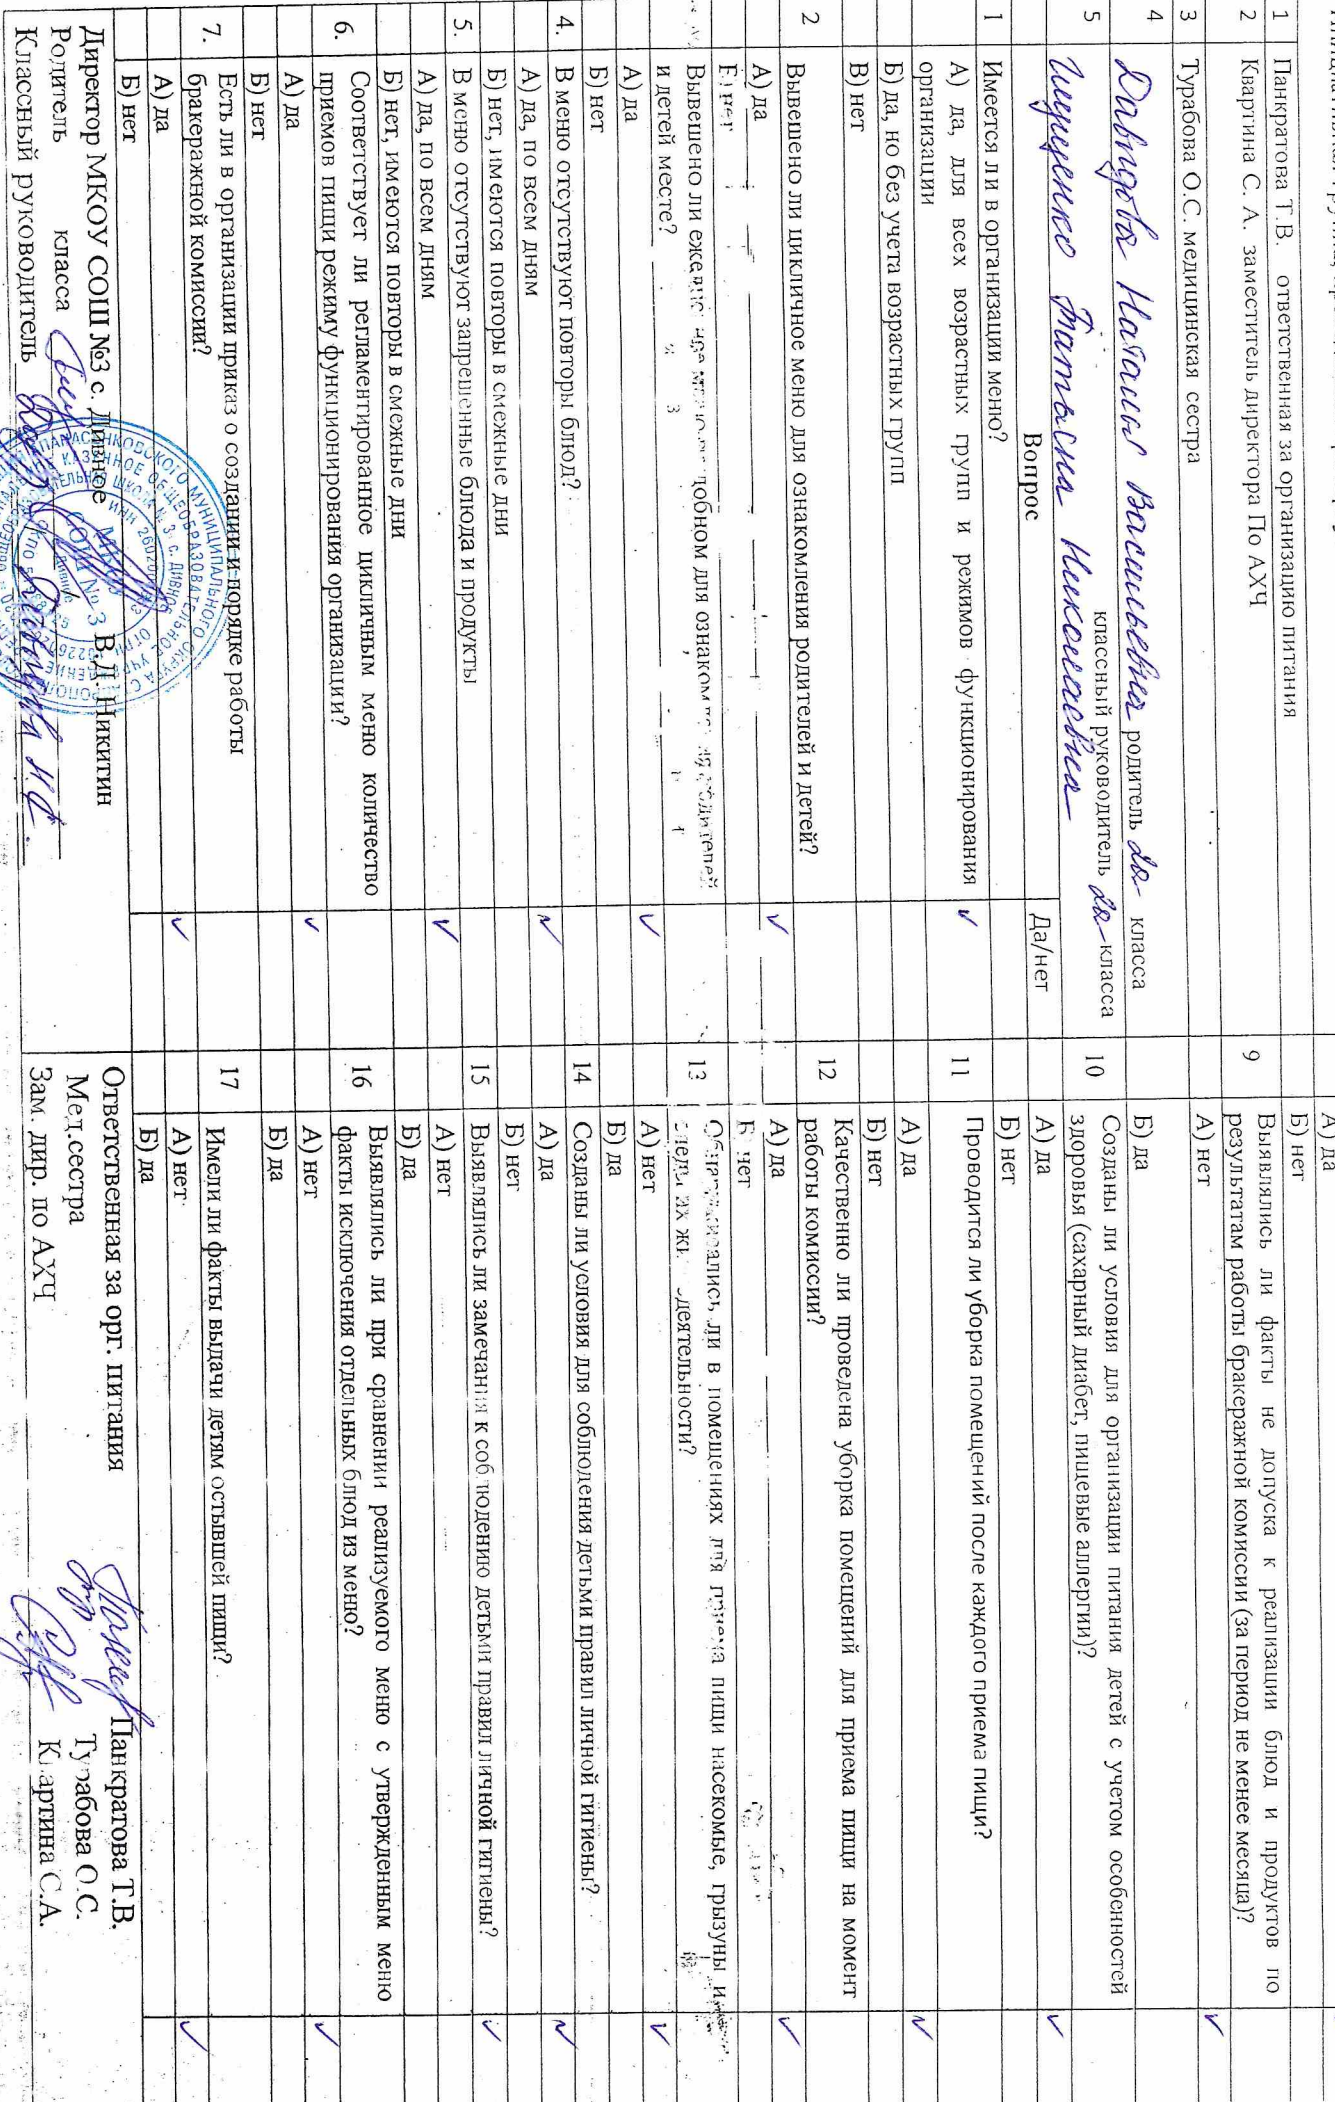 1 Панкратова Т.В. ответственная за организацию питания
2 Квартина С. А. заместитель директора По АХЧ
3 Турабова О.С. медицинская сестра
4 Васильевна родитель 2а класса
5 Ищенко Татьяна Николаевна классный руководитель 2а-класса
Вопрос Да/нет
1 Имеется ли в организации меню?
А) да, для всех возрастных групп и режимов функционирования
организации
Б) да, но без учета возрастных групп
В) нет
2 Вывешено ли цикличное меню для ознакомления родителей и детей?
А) да
Б) нет
Вывешено ли для ознакомления родителей
и детей месте?
А) да
Б) нет
4. В меню отсутствуют повторы блюд?
А) да, по всем дням
Б) нет, имеются повторы в смежные дни
5. В меню отсутствуют запрещенные блюда и продукты
А) да, по всем дням
Б) нет, имеются повторы в смежные дни
6. Соответствует ли регламентированное цикличным меню количество
приемов пищи режиму функционирования организации?
А) да
Б) нет
7. Есть ли в организации приказ о создании и порядке работы
бракеражной комиссии?
А) да
Б) нет
Директор МКОУ СОШ №3 с. Дивное В.Д. Никитин
Родитель класса
Классный руководитель
А) да
Б) нет
9 Выявлялись ли факты не допуска к реализации блюд и продуктов по
результатам работы бракеражной комиссии (за период не менее месяца)?
А) нет
Б) да
10 Созданы ли условия для организации питания детей с учетом особенностей
здоровья (сахарный диабет, пищевые аллергии)?
А) да
Б) нет
11 Проводится ли уборка помещений после каждого приема пищи?
А) да
Б) нет
12 Качественно ли проведена уборка помещений для приема пищи на момент
работы комиссии?
А) да
Б) нет
13 Обнаруживались ли в помещениях для приема пищи насекомые, грызуны и
следы их жизнедеятельности?
А) нет
Б) да
14 Созданы ли условия для соблюдения детьми правил личной гигиены?
А) да
Б) нет
15 Выявлялись ли замечания к соблюдению детьми правил личной гигиены?
А) нет
Б) да
16 Выявлялись ли при сравнении реализуемого меню с утвержденным меню
факты исключения отдельных блюд из меню?
А) нет
Б) да
17 Имели ли факты выдачи детям остывшей пищи?
А) нет
Б) да
Ответственная за орг. питания Панкратова Т.В.
Мед.сестра Турабова О.С.
Зам. дир. по АХЧ Квартина С.А.